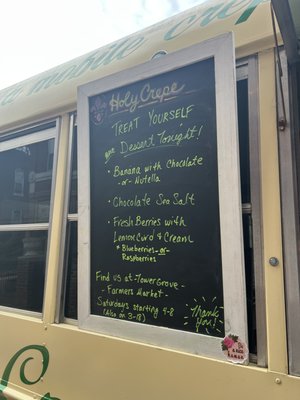 a mobile crepe
Holy Crepe
TREAT YOURSELF
Dessert Tonight!
• Banana with Chocolate
-or- Nutella
• Chocolate Sea Salt
• Fresh Berries with
Lemon Curd & Cream
* Blueberries -or-
Raspberries
Find us at - Tower Grove -
- Farmers Market -
Saturdays starting 4-8
(Also on 3-18)
Thank you